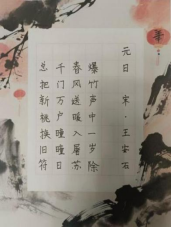 元日 宋·王安石
爆竹声中一岁除
春风送暖入屠苏
千门万户曈曈日
总把新桃换旧符